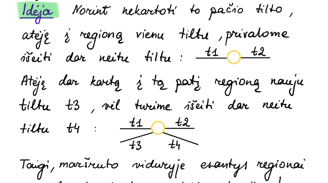 Idėja Norint nekartoti to pačio tilto,
atėję į regioną vienu tiltu, privalome
išeiti dar neitu tiltu: t1 t2
Atėję dar kartą į tą patį regioną nauju
tiltu t3, vėl turime išeiti dar neitu
tiltu t4: t1 t2
t3 t4
Taigi, maršruto viduryje esantys regionai